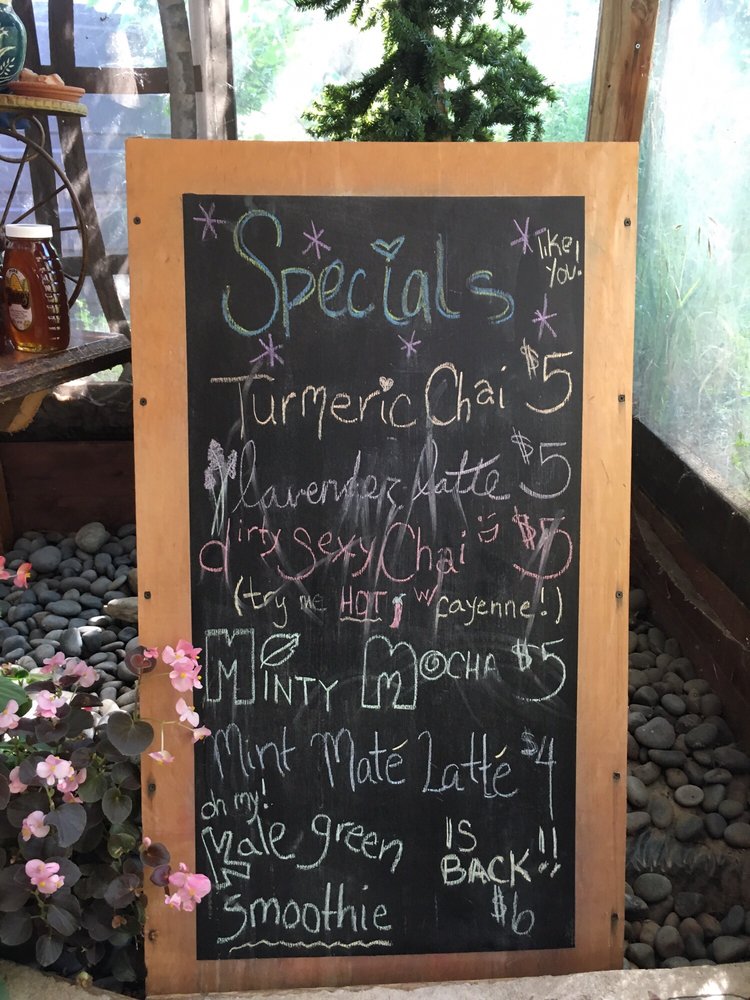 Specials
like
you!
Turmeric Chai $5
lavender latte $5
dirty Sexy Chai $5
(try me HOT w cayenne!)
Minty Mocha $5
Mint Maté Latté $4
oh my!
Kale green
Smoothie
IS
BACK!!
$6